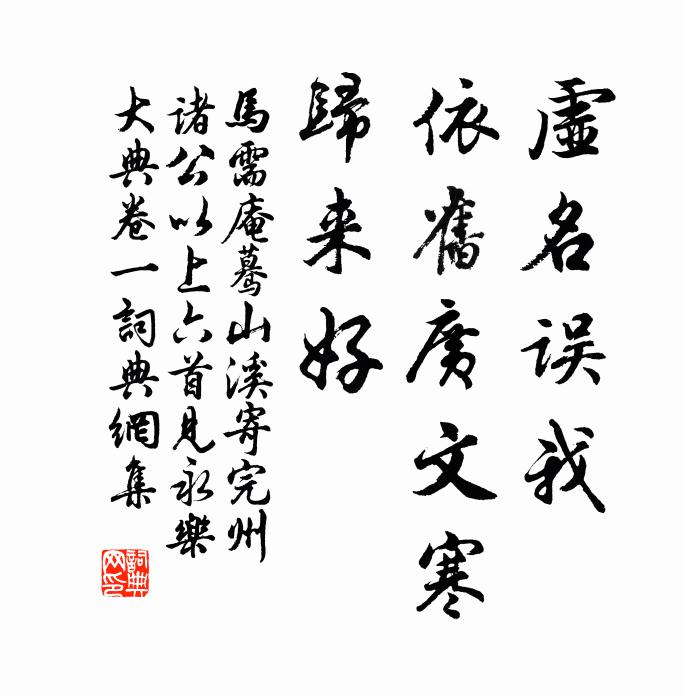 虛名误我
依舊廣文寒
歸来好
馬需庵驀山溪寄完州
诸公以上六首見永樂
大典卷一詞典網集
詞典网印